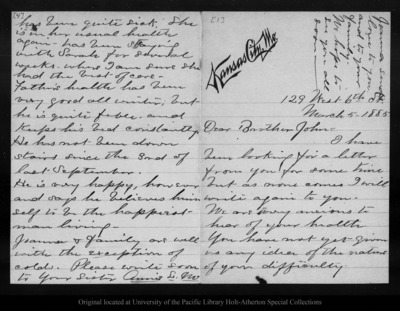 Kansas City, Mo.
129 West 6th St
March 5. 1885
Dear Brother John—
I have
been looking for a letter
from you for some time
but as none comes I will
write again to you.
We are very anxious to
hear of your health
You have not yet given
us any idea of the nature
of your difficulty
has been quite sick. She
is in her usual health
again. has been staying
with Sarah for several
weeks. where I am sure she
had the best of care—
Father's health has been
very good all winter, but
he is quite feeble. and
keeps his bed constantly
He has not been down
stairs since the 2nd of
last September.
He is very happy, however,
and says he believes him
self to be the happiest
man living
Joanna & family are well
with the exception of
colds. Please write soon
to Your Sister Annie L. M.
Joanna sends
love to you
We hope to
see you all
soon
Original located at University of the Pacific Library Holt-Atherton Special Collections